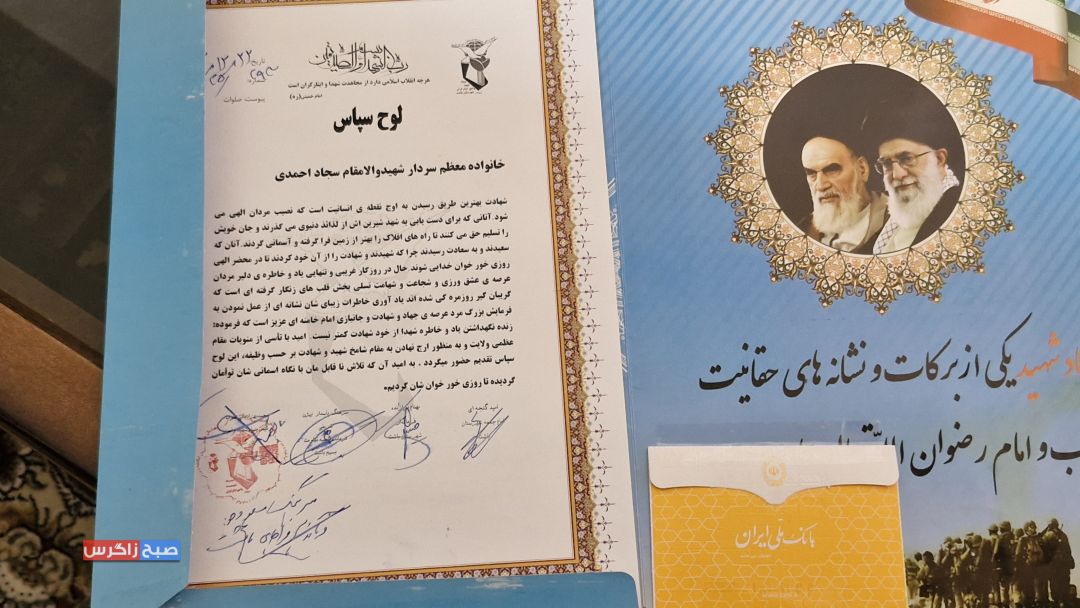 هرچه انقلاب اسلامی دارد از مجاهدت شهدا و ایثارگران است
امام خمینی(ره)
تاریخ
شماره
پیوست صلوات
لوح سپاس
خانواده معظم سردار شهیدوالامقام سجاد احمدی
شهادت بهترین طریق رسیدن به اوج نقطه ی انسانیت است که نصیب مردان الهی می
شود. آنانی که برای دست یابی به شهد شیرین اش از لذائذ دنیوی می گذرند و جان خویش
را تسلیم حق می کنند تا راه های افلاک را بهتر از زمین فرا گرفته و آسمانی گردند. آنان که
سعیدند و به سعادت رسیدند چرا که شهیدند و شهادت را از آن خود کردند تا در محضر الهی
روزی خور خوان خدایی شوند. حال در روزگار غریبی و تنهایی یاد و خاطره ی دلیر مردان
عرصه ی عشق ورزی و شجاعت و شهامت تسلی بخش قلب های زنگار گرفته ای است که
گریبان گیر روزمره گی شده اند یاد آوری خاطرات زیبای شان نشانه ای از عمل نمودن به
فرمایش بزرگ مرد عرصه ی جهاد و شهادت و جانبازی امام خامنه ای عزیز است که فرموده:
زنده نگهداشتن یاد و خاطره شهدا از خود شهادت کمتر نیست. امید با تأسی از منویات مقام
عظمی ولایت و به منظور ارج نهادن به مقام شامخ شهید و شهادت بر حسب وظیفه، این لوح
سپاس تقدیم حضور میگردد . به امید آن که تلاش نا قابل مان با نگاه اسمانی شان توأمان
گردیده تا روزی خور خوان شان گردیم.
یاد شهید یکی از برکات و نشانه های حقانیت
و امام رضوان الله
بانک ملی ایران
صبح زاگرس